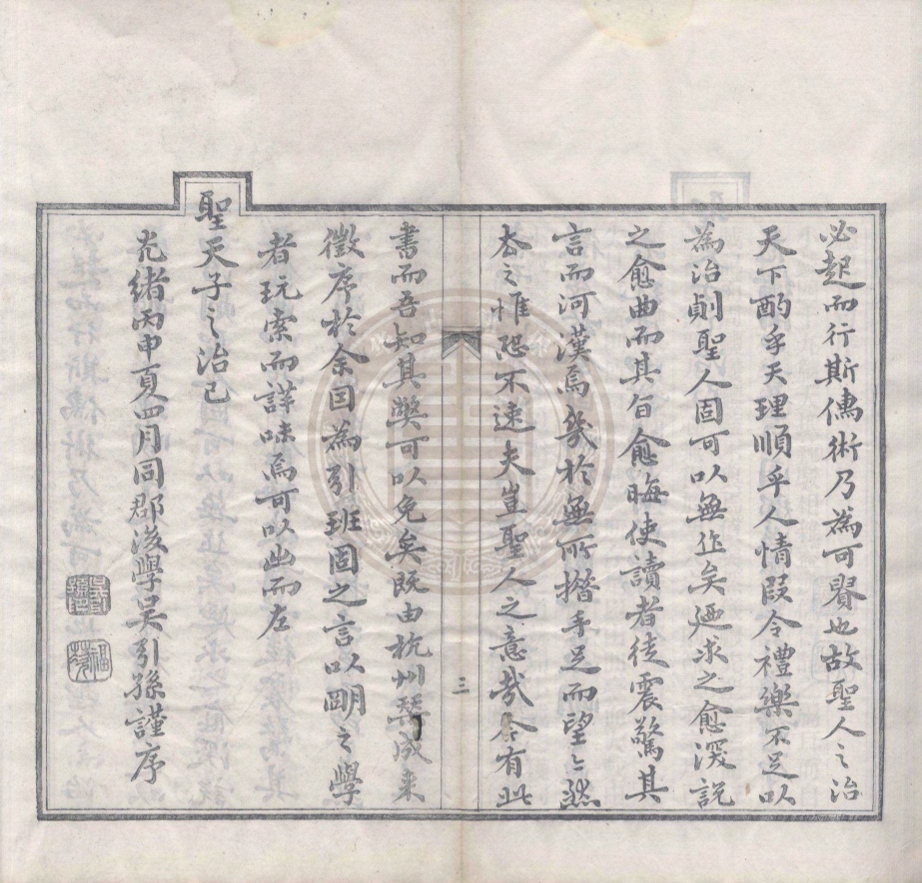 必起而行斯儒術乃為可貴也故聖人之治
天下酌乎天理順乎人情叚令禮樂不足以
為治則聖人固可以無作矣廼求之愈深說
之愈曲而其旨愈晦使讀者徒震驚其
言而河漢焉幾於無所措手足而望望然
去之惟恐不速夫豈聖人之意哉今有此
書而吾知其獘可以免矣既由杭州栞成来
徵序於余因為引班固之言以朙之學
者玩索而詳味焉可以出而左
聖天子之治已
光緒丙申夏四月同郡後學吳引孫謹序
三